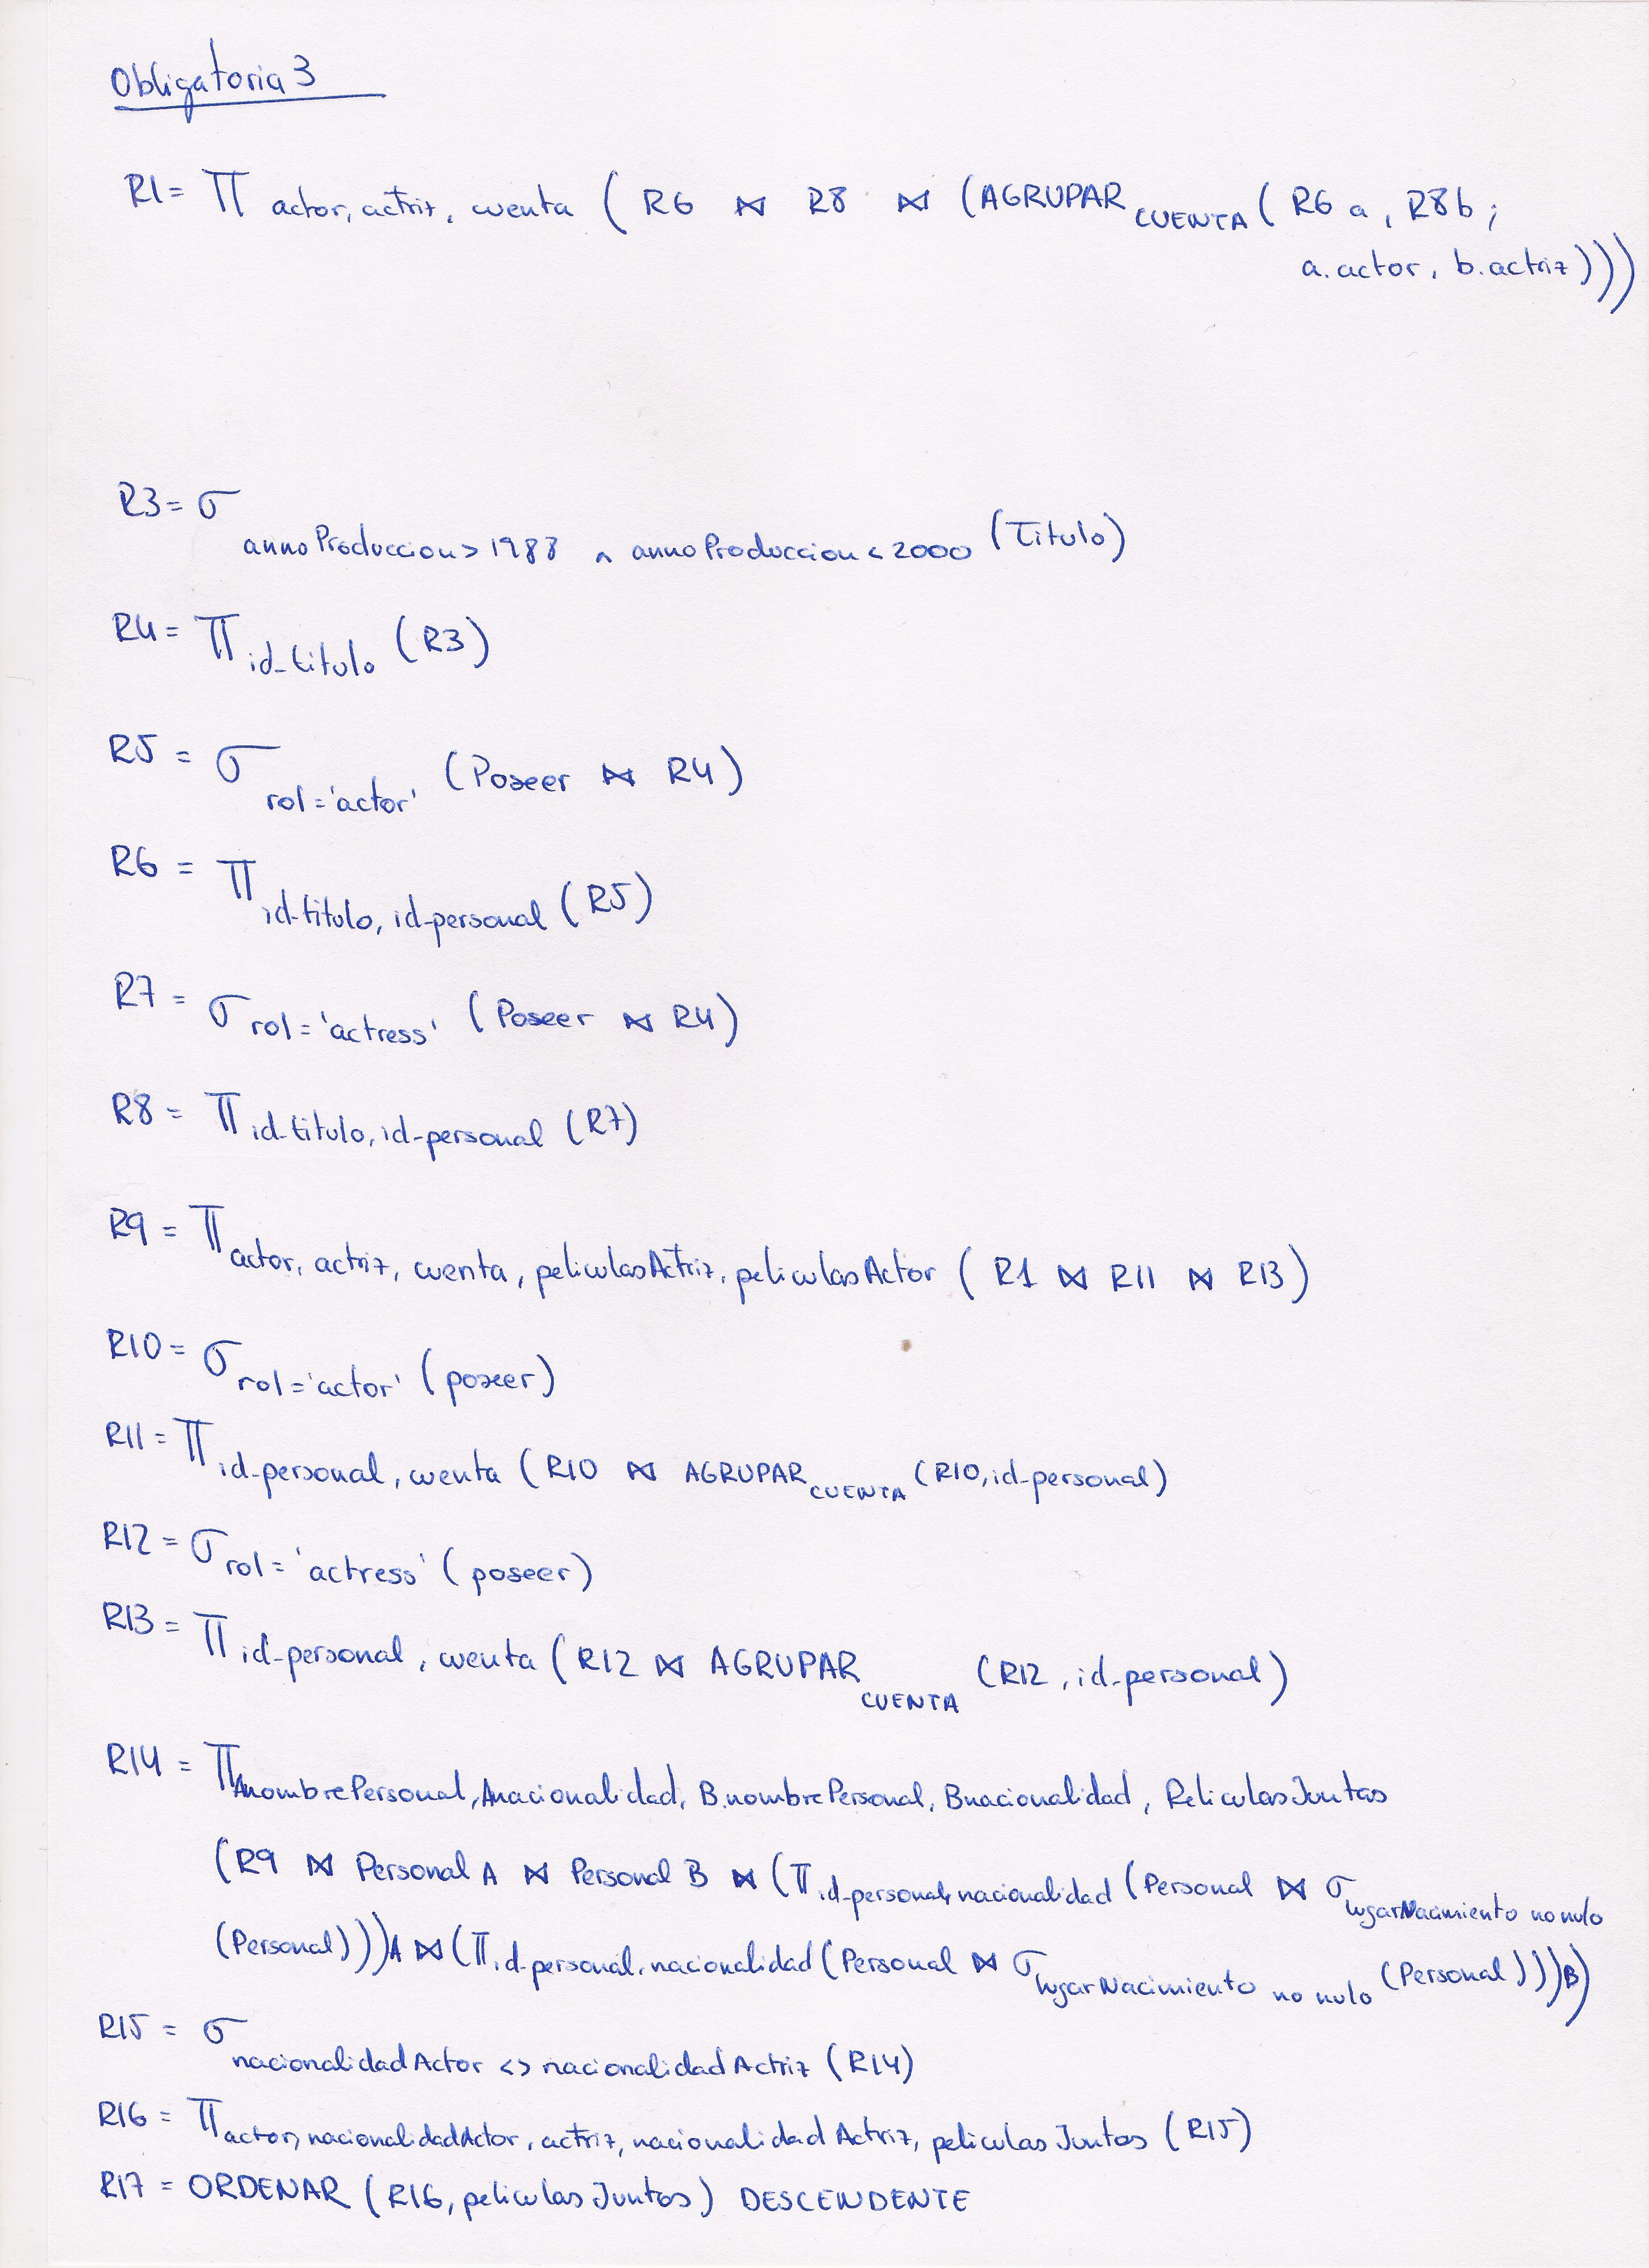 Obligatoria 3
R1= π actor, actriz, cuenta ( R6 ⋈ R8 ⋈ (AGRUPAR CUENTA ( R6 a, R8 b;
a.actor, b.actriz)))
R3= σ annoProduccion > 1988 ^ annoProduccion < 2000 (Titulo)
R4= π id_titulo (R3)
R5 = σ rol='actor' (Poseer ⋈ R4)
R6 = π id-titulo, id-personal (R5)
R7 = σ rol='actress' (Poseer ⋈ R4)
R8 = π id-titulo, id-personal (R7)
R9 = π actor, actriz, cuenta, peliculasActriz, peliculasActor ( R1 ⋈ R11 ⋈ R13)
R10= σ rol='actor' (poseer)
R11= π id-personal, cuenta (R10 ⋈ AGRUPAR CUENTA (R10, id-personal)
R12= σ rol='actress' (poseer)
R13= π id-personal, cuenta (R12 ⋈ AGRUPAR CUENTA (R12, id-personal)
R14 = π AnombrePersonal, Anacionalidad, B.nombrePersonal, Bnacionalidad, PeliculasJuntas
(R9 ⋈ Personal A ⋈ Personal B ⋈ (π id-personal, nacionalidad (Personal ⋈ σ lugarNacimiento no nulo
(Personal)))A ⋈ (π id-personal, nacionalidad (Personal ⋈ σ lugarNacimiento no nulo (Personal)))B)
R15 = σ nacionalidadActor <> nacionalidadActriz (R14)
R16 = π actor, nacionalidadActor, actriz, nacionalidadActriz, peliculasJuntos (R15)
R17 = ORDENAR (R16, peliculasJuntos) DESCENDENTE